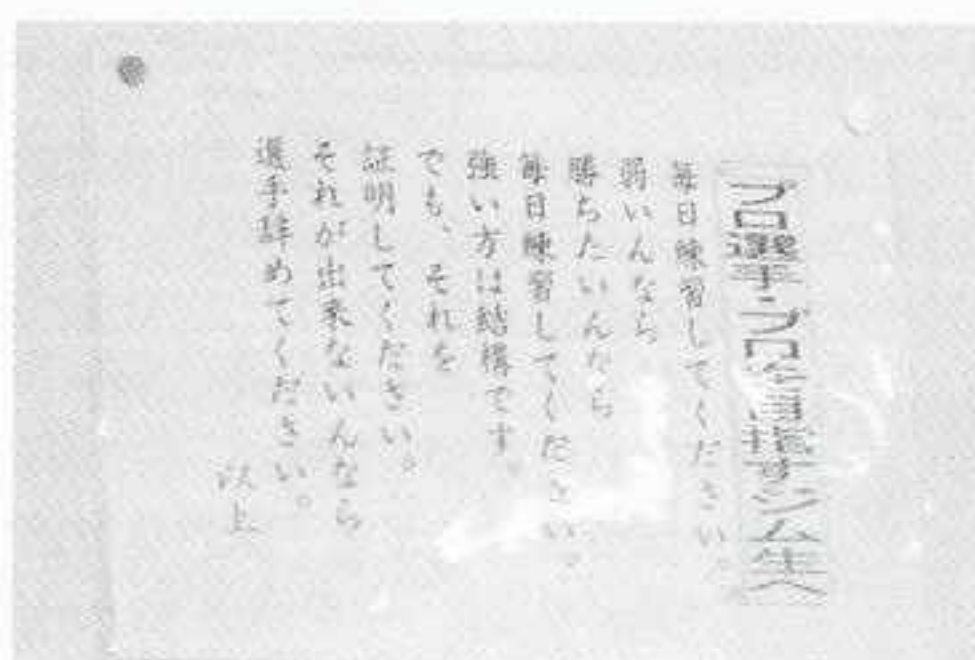 プロ選手・プロを目指すジム生へ
毎日練習してください。
弱いんなら
勝ちたいんなら
毎日練習してください。
強い方は結構です。
でも、それを
証明してください。
それが出来ないんなら
選手辞めてください。
以上